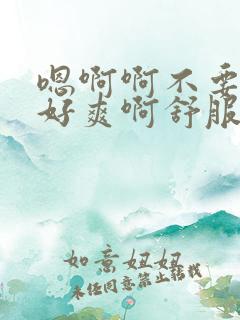 嗯啊啊不要
好爽啊舒服
如意妞妞
未经同意禁止转载